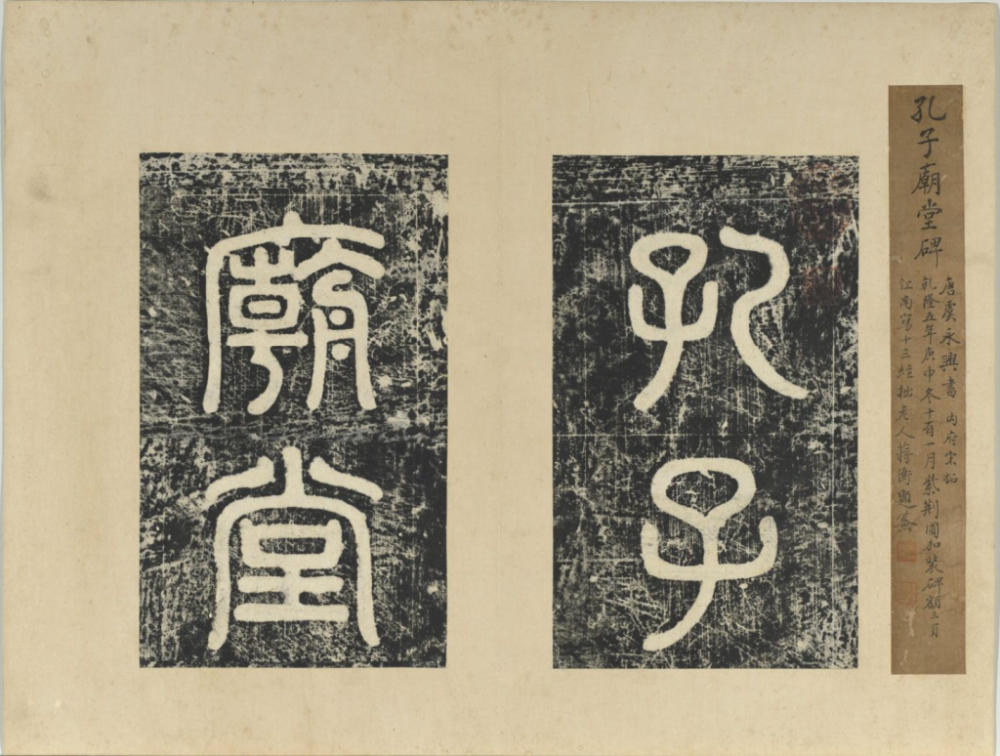 孔子廟堂碑
唐虞永興書 内府宋拓
乾隆五年庚申冬十有一月紫荆園加裝碑額二頁
江南寫十三經拙老人蔣衡題簽
孔子
廟堂